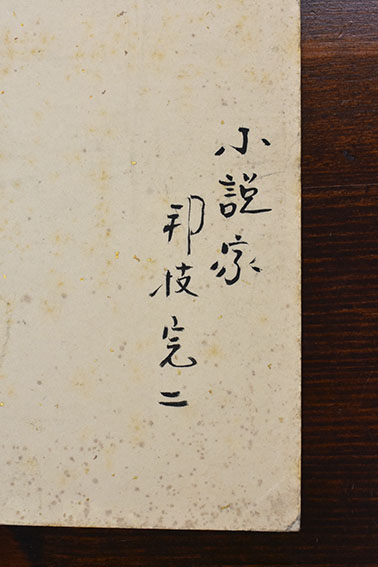 小説家
邦枝完二